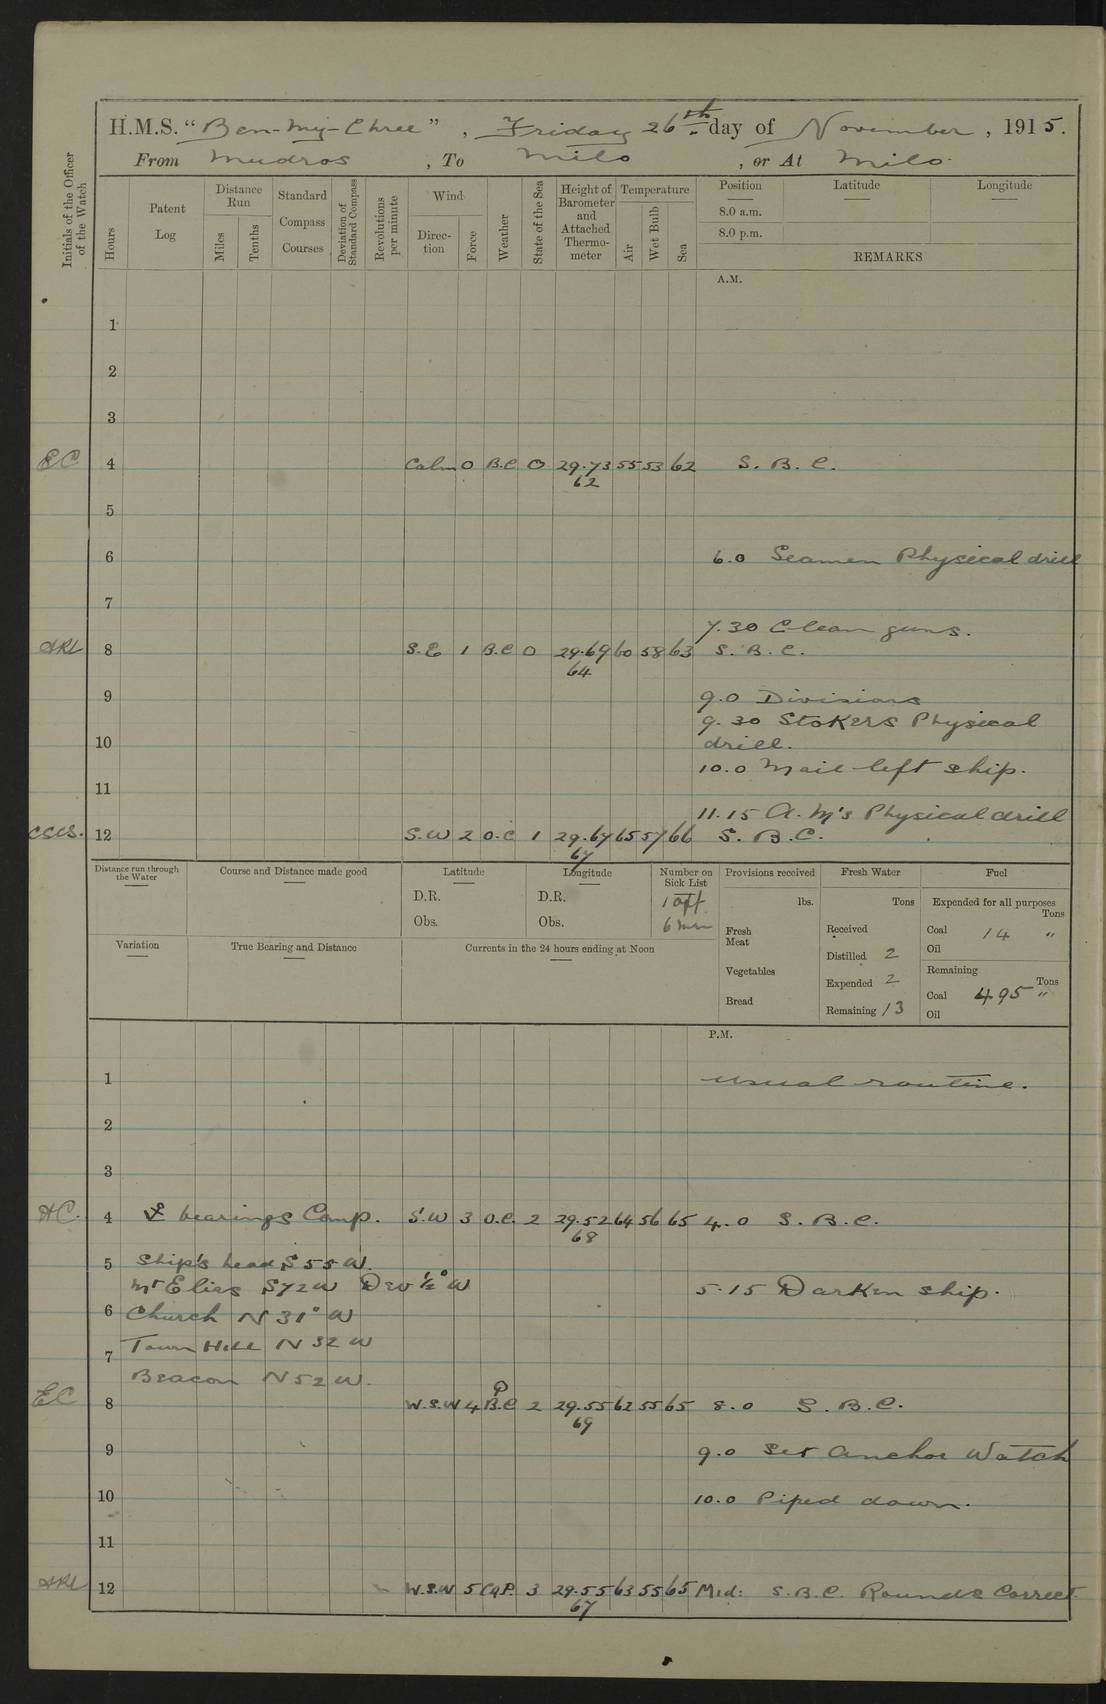 H.M.S. "Ben-my-Chree", Friday 26th day of November, 1915.
From Mudros, To Milo, or At Milo.
Initials of the Officer of the Watch
Hours
Patent Log
Distance Run
Miles
Tenths
Standard Compass Courses
Deviation of Standard Compass
Revolutions per minute
Wind
Direction
Force
Weather
State of the Sea
Height of Barometer and Attached Thermometer
Temperature
Air
Wet Bulb
Sea
Position
Latitude
Longitude
8.0 a.m.
8.0 p.m.
REMARKS
A.M.
1
2
3
EC 4 Calm 0 B.C 0 29.73 55 53 62 S. B. C.
62
5
6 6.0 Seamen Physical drill
7
7.30 Clean guns.
8 S.E 1 B.C 0 29.69 60 58 63 S. B. C.
64
9 9.0 Divisions
9.30 Stokers Physical
10 drill.
10.0 Mail left ship.
11
11.15 A.M's Physical drill
12 S.W 2 O.C 1 29.67 65 57 66 S. B. C.
67
Distance run through the Water
Course and Distance made good
Latitude
D.R.
Obs.
Longitude
D.R.
Obs.
Number on Sick List
1 off
6 men
Provisions received
lbs.
Fresh Meat
Vegetables
Bread
Fresh Water
Tons
Received
Distilled 2
Expended 2
Remaining 13
Fuel
Expended for all purposes
Tons
Coal 14 "
Oil
Remaining
Tons
Coal 495 "
Oil
Variation
True Bearing and Distance
Currents in the 24 hours ending at Noon
P.M.
1 Usual routine.
2
3
HC. 4 bearings Comp. S.W 3 O.C. 2 29.52 64 56 65 4.0 S. B. C.
68
5 Ship's head S 55 W.
Mt Elias S72W Dev ½° W 5.15 Darken ship.
6 Church N 31° W
Town Hill N 32 W
7
Beacon N 52 W.
EC 8 W.S.W 4 B.C P 2 29.55 62 55 65 8.0 S. B. C.
69
9 9.0 Set Anchor Watch
10 10.0 Piped down.
11
12 W.S.W 5 CqP. 3 29.55 63 55 65 Mid: S.B.C. Rounds Correct.
67